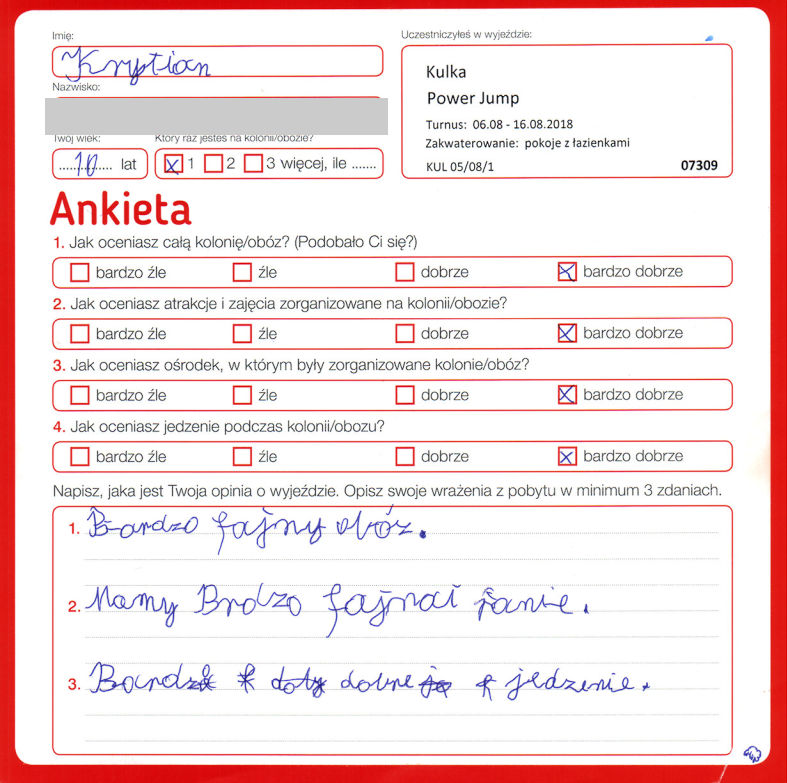 Imię:
Kryptian
Nazwisko:
Uczestniczyłeś w wyjeździe:
Kulka
Power Jump
Turnus: 06.08 - 16.08.2018
Zakwaterowanie: pokoje z łazienkami
KUL 05/08/1 07309
Twój wiek: Który raz jesteś na kolonii/obozie?
10 lat 1 2 3 więcej, ile .......
Ankieta
1. Jak oceniasz całą kolonię/obóz? (Podobało Ci się?)
bardzo źle źle dobrze bardzo dobrze
2. Jak oceniasz atrakcje i zajęcia zorganizowane na kolonii/obozie?
bardzo źle źle dobrze bardzo dobrze
3. Jak oceniasz ośrodek, w którym były zorganizowane kolonie/obóz?
bardzo źle źle dobrze bardzo dobrze
4. Jak oceniasz jedzenie podczas kolonii/obozu?
bardzo źle źle dobrze bardzo dobrze
Napisz, jaka jest Twoja opinia o wyjeździe. Opisz swoje wrażenia z pobytu w minimum 3 zdaniach.
1. Bardzo fajny obóz.
2. Mamy Brdzo
3. dobre jedzenie.